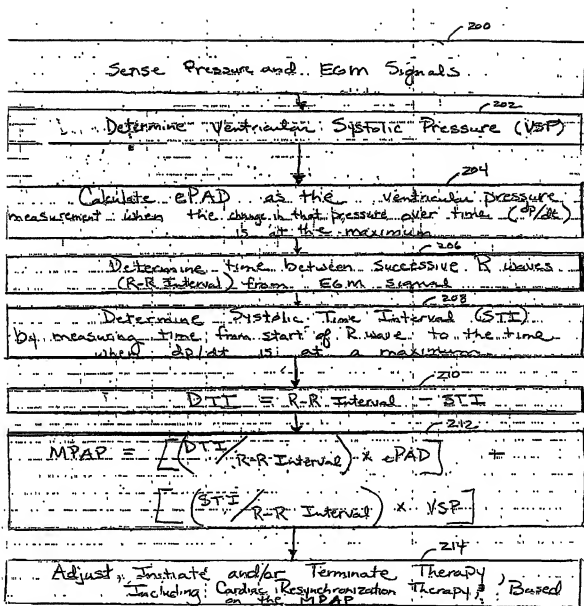 200
Sense Pressure and EGM Signals
202
Determine Ventricular Systolic Pressure (VSP)
204
Calculate ePAD as the ventricular pressure
measurement when the change in that pressure over time (dP/dt)
is at the maximum
206
Determine time between successive R waves
(R-R Interval) from EGM signal
208
Determine Systolic Time Interval (STI)
by measuring time from start of R wave to the time
when dp/dt is at a maximum
210
DTI = R-R Interval - STI
212
MPAP = [(DTI/R-R Interval) x ePAD] +
[(STI/R-R Interval) x VSP]
214
Adjust, Initiate and/or Terminate Therapy,
Including Cardiac Resynchronization Therapy, Based
on the MPAP